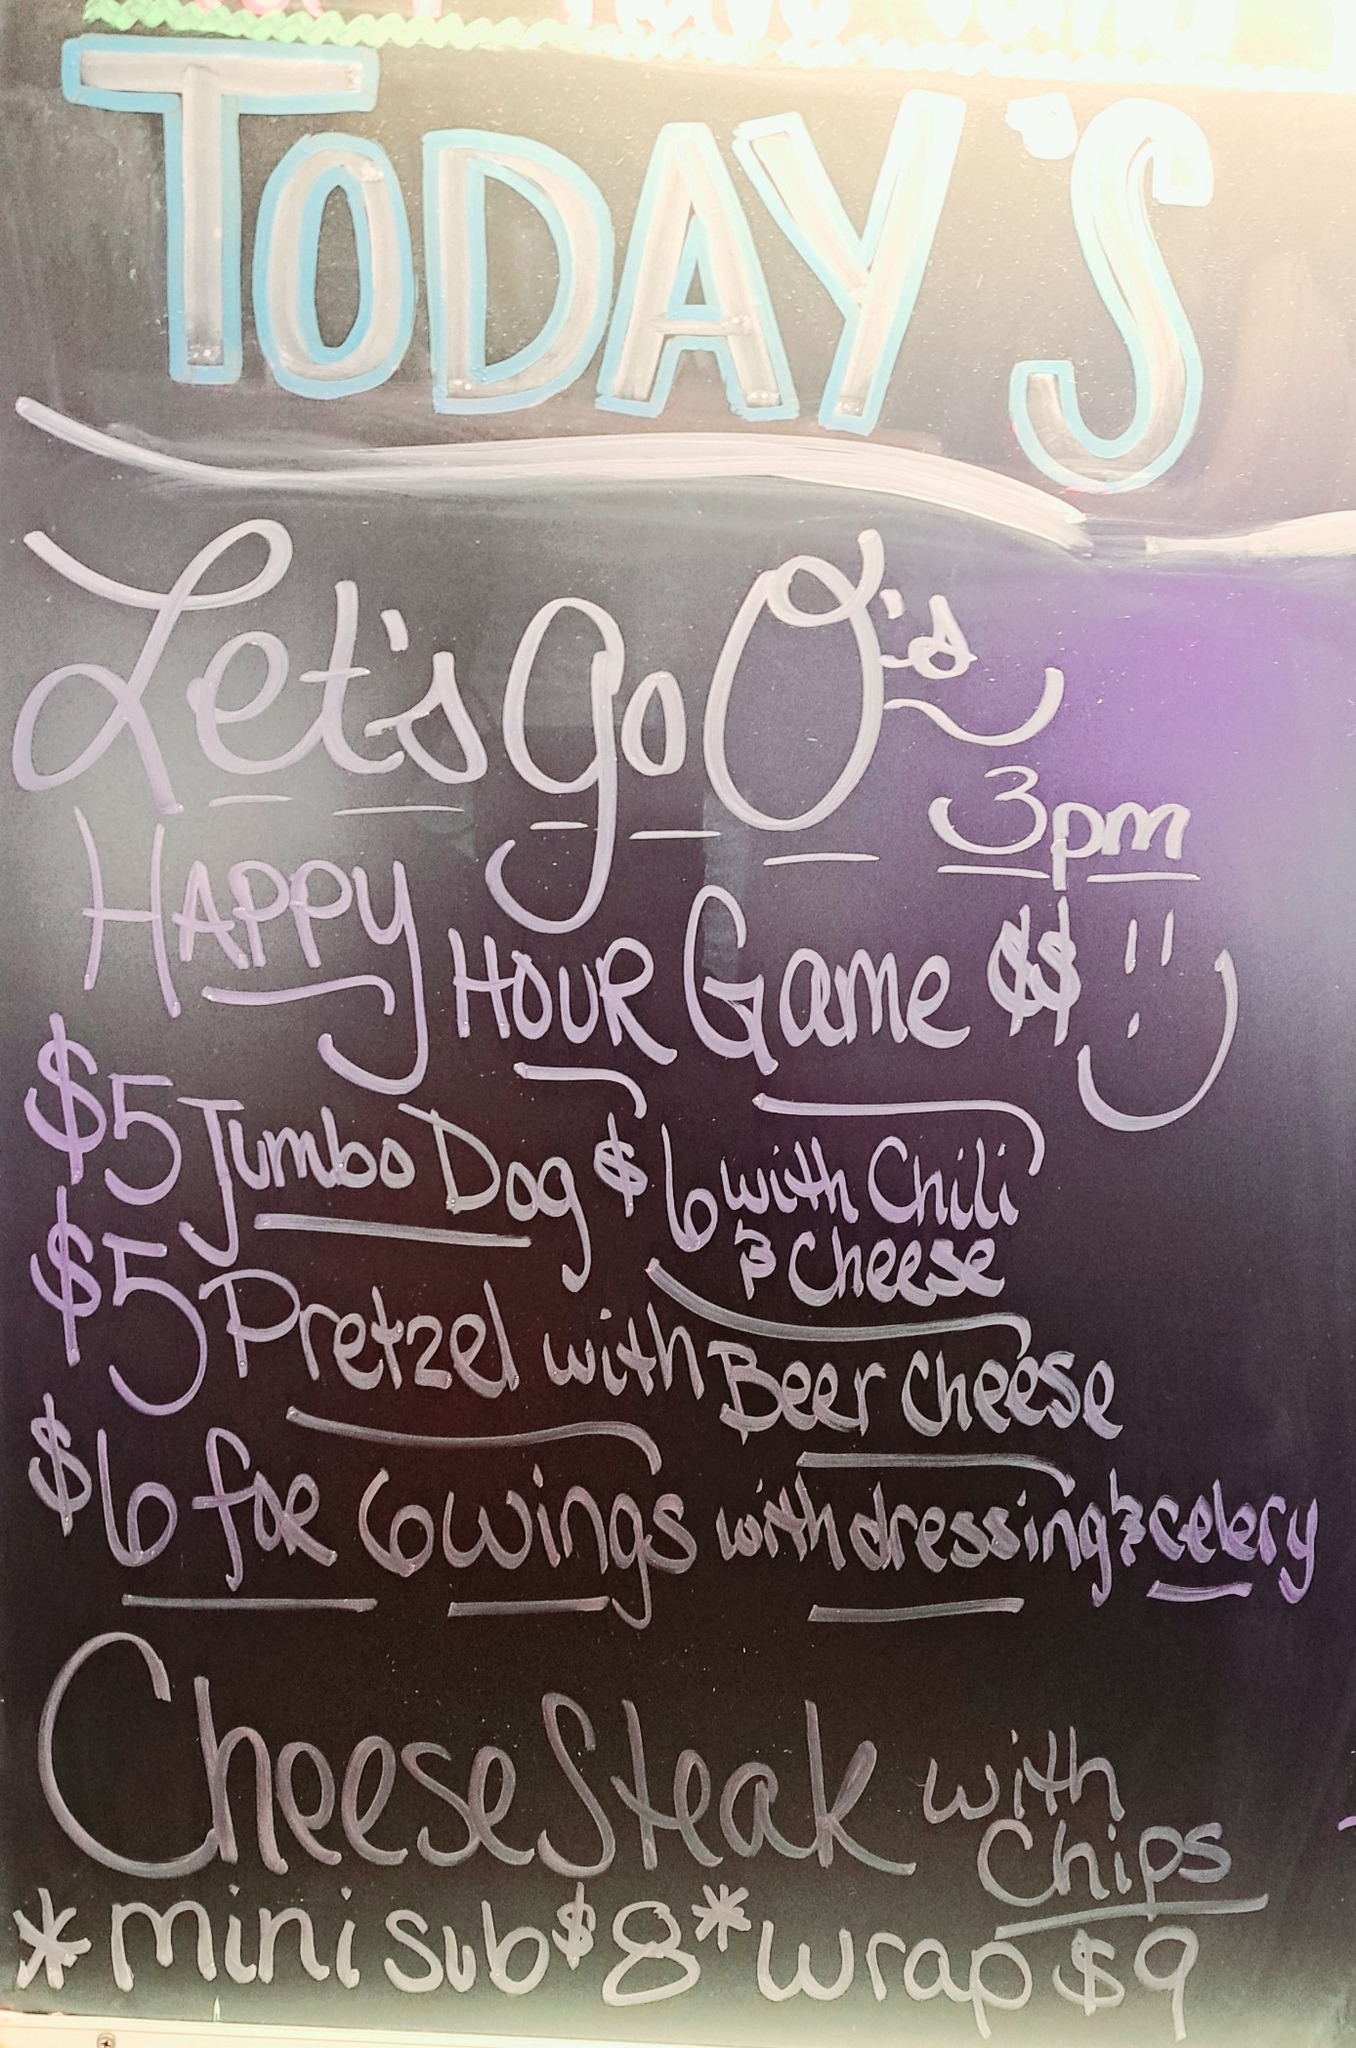 TODAY'S
Let's go O's
3pm
HAPPY HOUR Game $$
$5 Jumbo Dog $6 with Chili
& Cheese
$5 Pretzel with Beer Cheese
$6 for 6 wings with dressing & celery
Cheese Steak with
Chips
*mini sub $8 *wrap $9